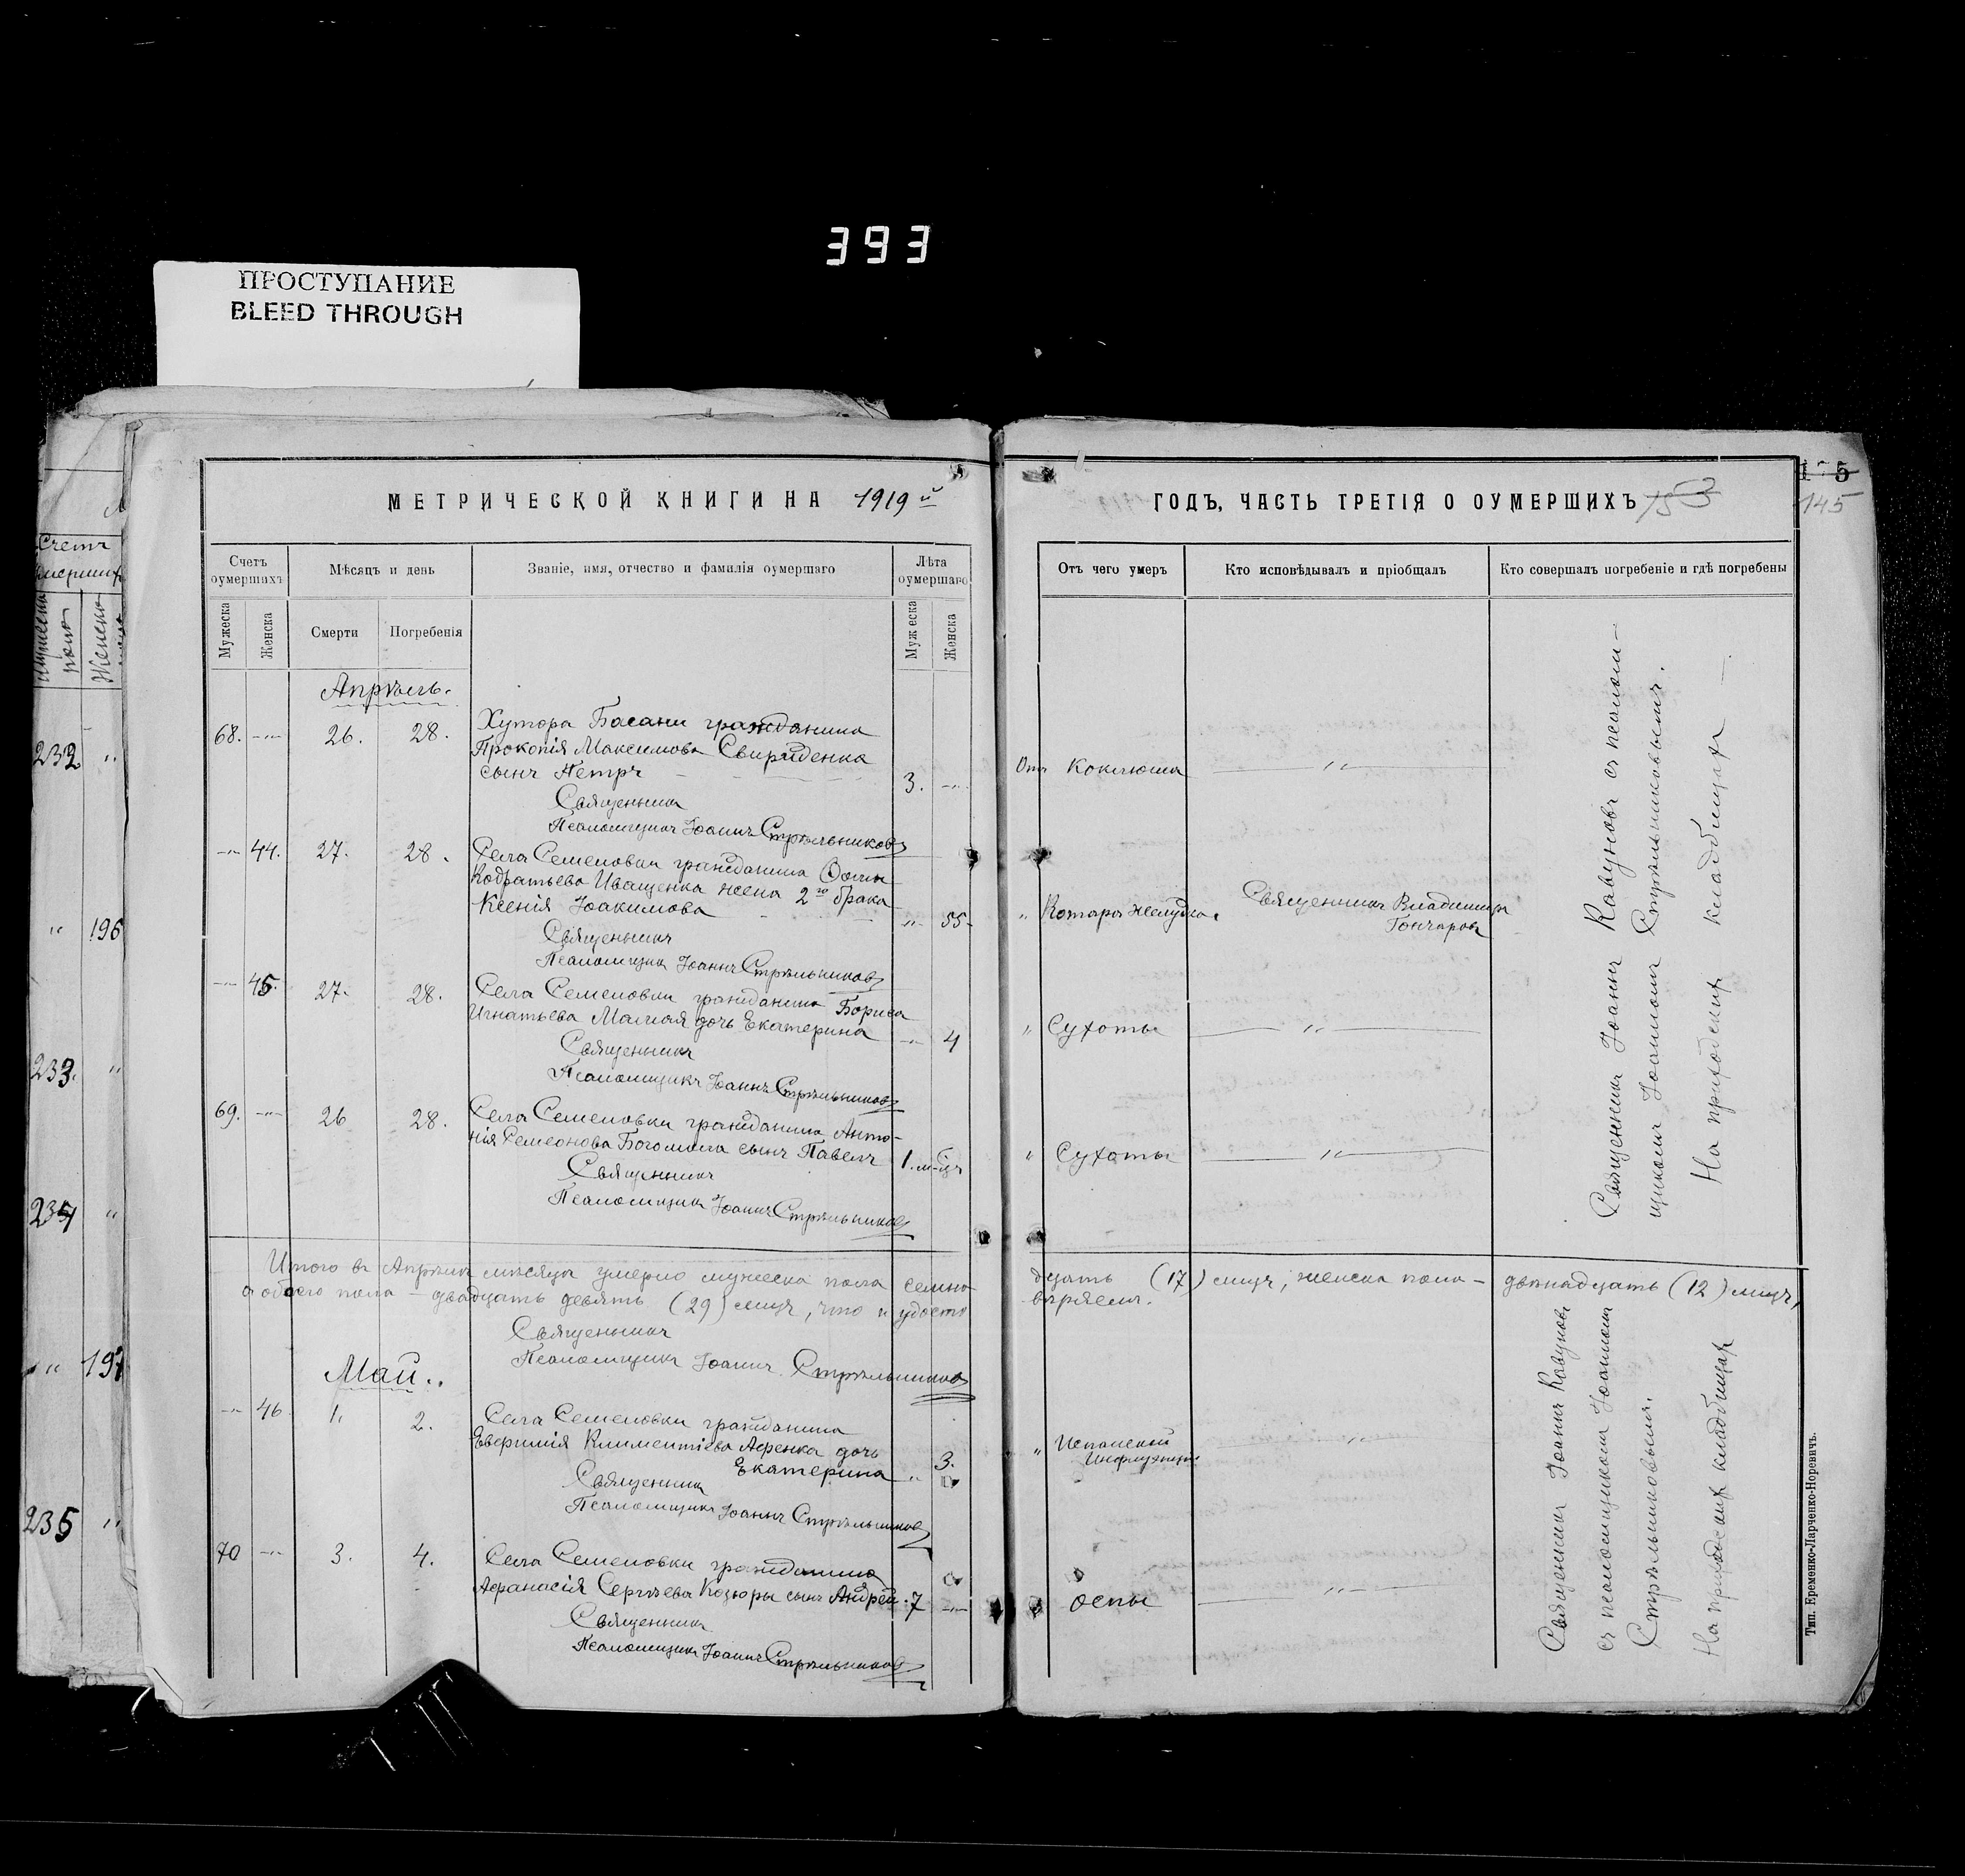 393
ПРОСТУПАНИЕ
BLEED THROUGH
МЕТРИЧЕСКОЙ КНИГИ НА 1919й
Счетъ оумершихъ
Мѣсяцъ и день
Званіе, имя, отчество и фамилія оумершаго
Лѣта оумершаго
Мужеска
Женска
Смерти
Погребенія
Мужеска
Женска
Апрѣль.
68. -„- 26. 28. Хутора Басани гражданина
Прокопія Максимова Свириденка
сынъ Петръ 3. -„-
Священникъ
Псаломщикъ Іоаннъ Стрѣльниковъ
-„- 44. 27. 28. Села Семеновки гражданина
Кодратьева Иващенка жена 2го брака
Ксенія Іоакимова -„- 55.
Священникъ
Псаломщикъ Іоаннъ Стрѣльниковъ
-„- 45. 27. 28. Села Семеновки гражданина Бориса
Игнатьева Мамая дочь Екатерина -„- 4
Священникъ
Псаломщикъ Іоаннъ Стрѣльниковъ
69. -„- 26 28. Села Семеновки гражданина Анто-
нія Семеонова Богомола сынъ Павелъ 1.
Священникъ
Псаломщикъ Іоаннъ Стрѣльниковъ
Итого въ Апрѣлѣ мѣсяцѣ умерло мужеска пола семна-
а обоего пола – двадцать девять (29) лицъ, что и удосто-
Священникъ
Псаломщикъ Іоаннъ Стрѣльниковъ
Май.
-„- 46 1. 2. Села Семеновки гражданина
Климентіева дочь
Екатерина „ 3.
Священникъ
Псаломщикъ Іоаннъ Стрѣльниковъ
70 -„- 3. 4. Села Семеновки гражданина
Афанасія Сергѣева Козюры сынъ Андрей. 7 -„-
Священникъ
Псаломщикъ Іоаннъ Стрѣльниковъ
ГОДЪ, ЧАСТЬ ТРЕТІЯ О ОУМЕРШИХЪ 153
175
145
Отъ чего умеръ
Кто исповѣдывалъ и пріобщалъ
Кто совершалъ погребеніе и гдѣ погребены
Отъ Коклюша -„-
„ Катара желудка. Священникъ Владимиръ
Гончаровъ
„ Сухоты -„-
„ Сухоты -„-
Священникъ Іоаннъ Кавуновъ съ псалом-
щикомъ Іоанномъ Стрѣльниковымъ.
На приходскихъ кладбищахъ
дцать (17) лицъ, женска пола – двѣнадцать (12) лицъ,
вѣряемъ.
„ Испанской
Инфлуэнціи -„-
оспы -„-
Священникъ Іоаннъ Кавуновъ
съ псаломщикомъ Іоанномъ
Стрѣльниковымъ.
На приходскихъ кладбищахъ
Тип. Еременко-Ларченко-Норевичъ.
Счетъ
умерших
Мужеска
пола
Женска
232 „
„ 196
233. „
234 „
„ 197
235 „